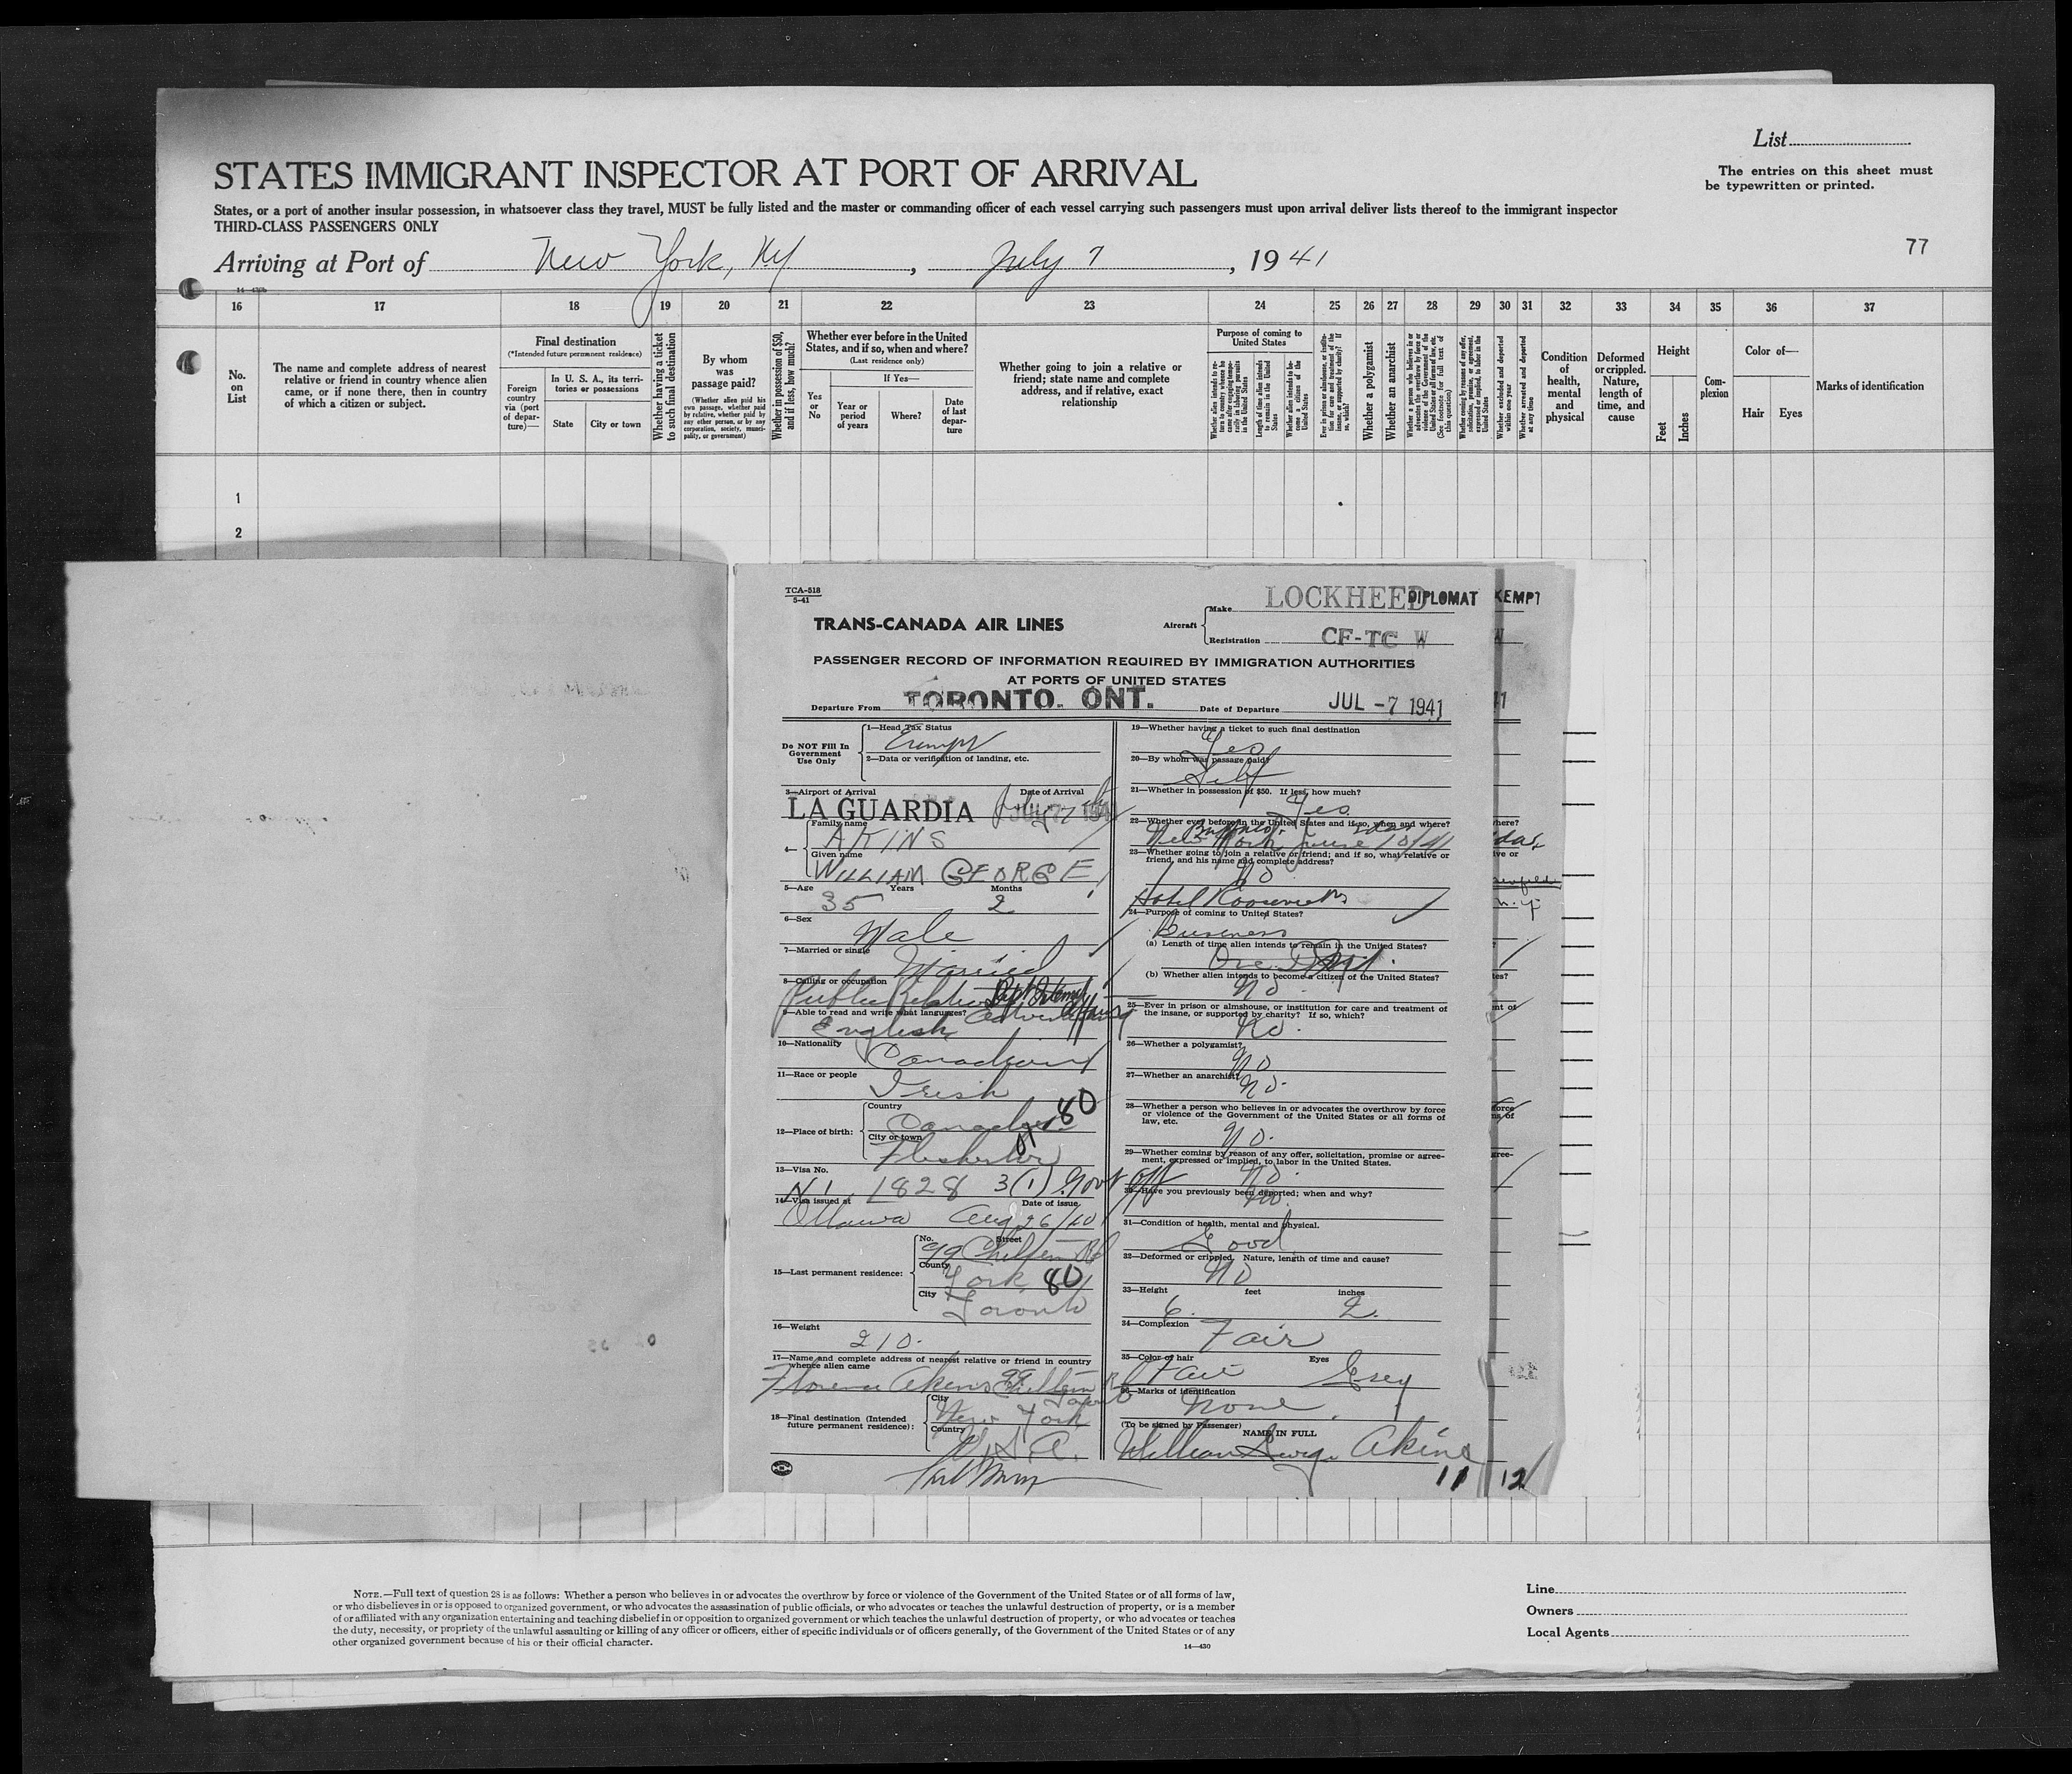 List
STATES IMMIGRANT INSPECTOR AT PORT OF ARRIVAL
The entries on this sheet must
be typewritten or printed.
States, or a port of another insular possession, in whatsoever class they travel, MUST be fully listed and the master or commanding officer of each vessel carrying such passengers must upon arrival deliver lists thereof to the immigrant inspector
THIRD-CLASS PASSENGERS ONLY
77
Arriving at Port of New York, NY, July 7, 1941
16 17 18 19 20 21 22 23 24 25 26 27 28 29 30 31 32 33 34 35 36 37
No.
on
List
The name and complete address of nearest
relative or friend in country whence alien
came, or if none there, then in country
of which a citizen or subject.
Final destination
(*Intended future permanent residence)
Foreign
country
via (port
of depar-
ture)—
In U. S. A., its terri-
tories or possessions
State
City or town
Whether having a ticket
to such final destination
By whom
was
passage paid?
(Whether alien paid his
own passage, whether paid
by relative, whether paid by
any other person, or by any
corporation, society, munici-
pality, or government)
Whether in possession of $50,
and if less, how much?
Whether ever before in the United
States, and if so, when and where?
(Last residence only)
Yes
or
No
If Yes—
Year or
period
of years
Where?
Date
of last
depar-
ture
Whether going to join a relative or
friend; state name and complete
address, and if relative, exact
relationship
Purpose of coming to
United States
Whether alien intends to re-
turn to country whence he
came after engaging tempo-
rarily in laboring pursuits
in the United States
Length of time alien intends
to remain in the United
States
Whether alien intends to be-
come a citizen of the
United States
Ever in prison or almshouse, or institu-
tion for care and treatment of the
insane, or supported by charity? If
so, which?
Whether a polygamist
Whether an anarchist
Whether a person who believes in or
advocates the overthrow by force or
violence of the Government of the
United States or all forms of law, etc.
(See footnote for full text of
this question)
Whether coming by reasons of any offer,
solicitation, promise, or agreement,
expressed or implied, to labor in the
United States
Whether excluded and deported
within one year
Whether arrested and deported
at any time
Condition
of
health,
mental
and
physical
Deformed
or crippled.
Nature,
length of
time, and
cause
Height
Feet
Inches
Com-
plexion
Color of—
Hair
Eyes
Marks of identification
1
2
TCA-518
5-41
TRANS-CANADA AIR LINES
Aircraft
Make LOCKHEED
DIPLOMAT
Registration CF-TC W
PASSENGER RECORD OF INFORMATION REQUIRED BY IMMIGRATION AUTHORITIES
AT PORTS OF UNITED STATES
Departure From TORONTO. ONT.
Date of Departure JUL -7 1941
Do NOT Fill In
Government
Use Only
1—Head Tax Status
Exempt
2—Data or verification of landing, etc.
3—Airport of Arrival
Date of Arrival
LA GUARDIA
4—
Family name
AKINS
Given name
WILLIAM GEORGE
5—Age Years Months
35 2
6—Sex
Male
7—Married or single
Married
8—Calling or occupation
Public Relations
9—Able to read and write what languages?
English
10—Nationality
Canadian
11—Race or people
Irish
12—Place of birth:
Country
Canada
80
City or town
Flesherton
13—Visa No.
1828 3(1) Govt Off
14—Visa issued at Date of issue
Ottawa Aug 26/40
15—Last permanent residence:
No. Street
99 Chiltern Rd
County
York 80
City
Toronto
16—Weight
210.
17—Name and complete address of nearest relative or friend in country
whence alien came
Florence Akins 99 Chiltern Rd
18—Final destination (Intended
future permanent residence):
City
New York
Country
U.S.A.
19—Whether having a ticket to such final destination
Yes
20—By whom was passage paid?
Self
21—Whether in possession of $50. If less, how much?
Yes.
22—Whether ever before in the United States and if so, when and where?
New York, June 10/41
23—Whether going to join a relative or friend; and if so, what relative or
friend, and his name and complete address?
No
Hotel Roosevelt
24—Purpose of coming to United States?
Business
(a) Length of time alien intends to remain in the United States?
One
(b) Whether alien intends to become a citizen of the United States?
No.
25—Ever in prison or almshouse, or institution for care and treatment of
the insane, or supported by charity? If so, which?
No.
26—Whether a polygamist?
No
27—Whether an anarchist?
No.
28—Whether a person who believes in or advocates the overthrow by force
or violence of the Government of the United States or all forms of
law, etc.
No.
29—Whether coming by reason of any offer, solicitation, promise or agree-
ment, expressed or implied, to labor in the United States.
No.
30—Have you previously been deported; when and why?
No.
31—Condition of health, mental and physical.
Good
32—Deformed or crippled. Nature, length of time and cause?
No
33—Height feet inches
6. 2.
34—Complexion
Fair
35—Color of hair Eyes
Fair Grey
36—Marks of identification
None.
(To be signed by Passenger)
NAME IN FULL
William George Akins
11
12
NOTE.—Full text of question 28 is as follows: Whether a person who believes in or advocates the overthrow by force or violence of the Government of the United States or of all forms of law,
or who disbelieves in or is opposed to organized government, or who advocates the assassination of public officials, or who advocates or teaches the unlawful destruction of property, or is a member
of or affiliated with any organization entertaining and teaching disbelief in or opposition to organized government or which teaches the unlawful destruction of property, or who advocates or teaches
the duty, necessity, or propriety of the unlawful assaulting or killing of any officer or officers, either of specific individuals or of officers generally, of the Government of the United States or of any
other organized government because of his or their official character.
14—430
Line
Owners
Local Agents